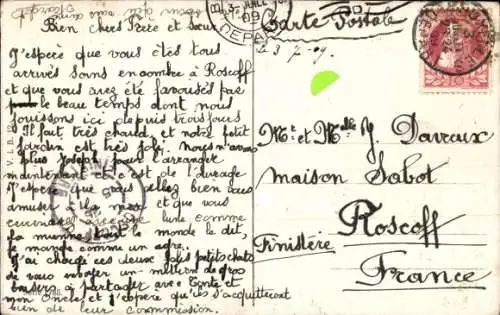 Carte Postale
Le 3-7-09.
Bien chers Frère et Sœur
J'espère que vous êtes tous
arrivés sans encombre à Roscoff
et que vous avez été favorisés par
le beau temps dont nous
jouissons ici depuis trois jours
Il fait très chaud, et notre petit
jardin est très joli. Nous n'avons
plus Joseph pour l'arranger
maintenant et c'est de l'ouvrage
J'espère que vous allez bien vous
amuser à la mer et que vous
lunle comme
le monde le dit,
je mange comme un ogre.
J'ai chargé ces deux jolis petits chats
de vous envoyer un million de gros
baisers à partager avec Tante et
mon Oncle et j'espère qu'ils s'acquitteront
bien de leur commission.
Mr et Melle J. Davreux
maison Sabot
Roscoff
Finistère
France
V.L.B.